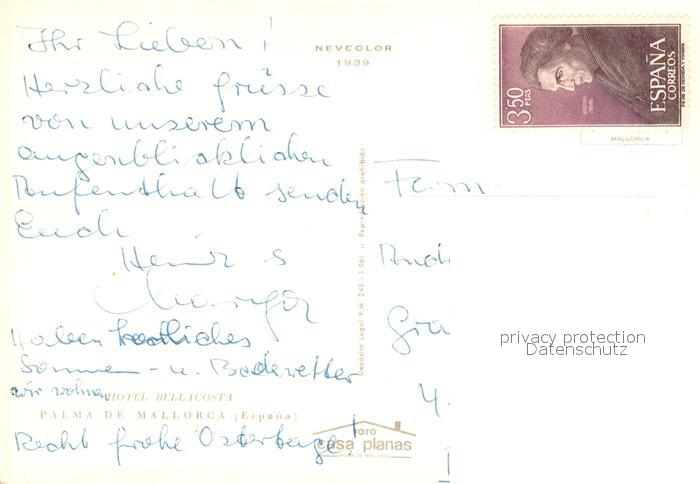 Ihr Lieben!
Herzliche Grüsse
von unserem
augenblicklichen
Aufenthalt senden
Euch
Heinz
Haben herrliches
Sonnen- u. Badewetter
wir wohnen HOTEL BELLACOSTA
PALMA DE MALLORCA (España)
Recht frohe Ostertage!
NEVCOLOR
1939
Depósito Legal P.M. 249 - 1.961 Reproducción prohibida
FOTO
casa planas
PALMA DE MALLORCA
3,50
PTAS
ESPAÑA
CORREOS
MALLORCA
Fam.
And
Gra
4.
privacy protection
Datenschutz